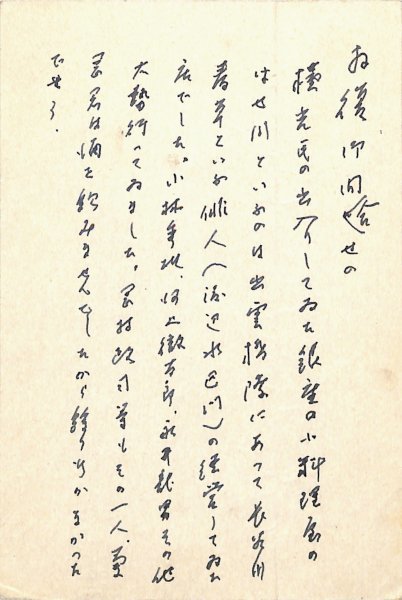 拝復 御問合せの
横光氏の出入りしてゐた銀座の小料理屋の
はせ川といふのは出雲橋際にあつて長谷川
春草といふ俳人(渡辺水巴門)の経営してゐた
店でした。小林秀雄、河上徹太郎、永井龍男その他
大勢行つてゐました。等もその一人、
君は酒を飲みませんでしたから余り行かなかつた
でせう.